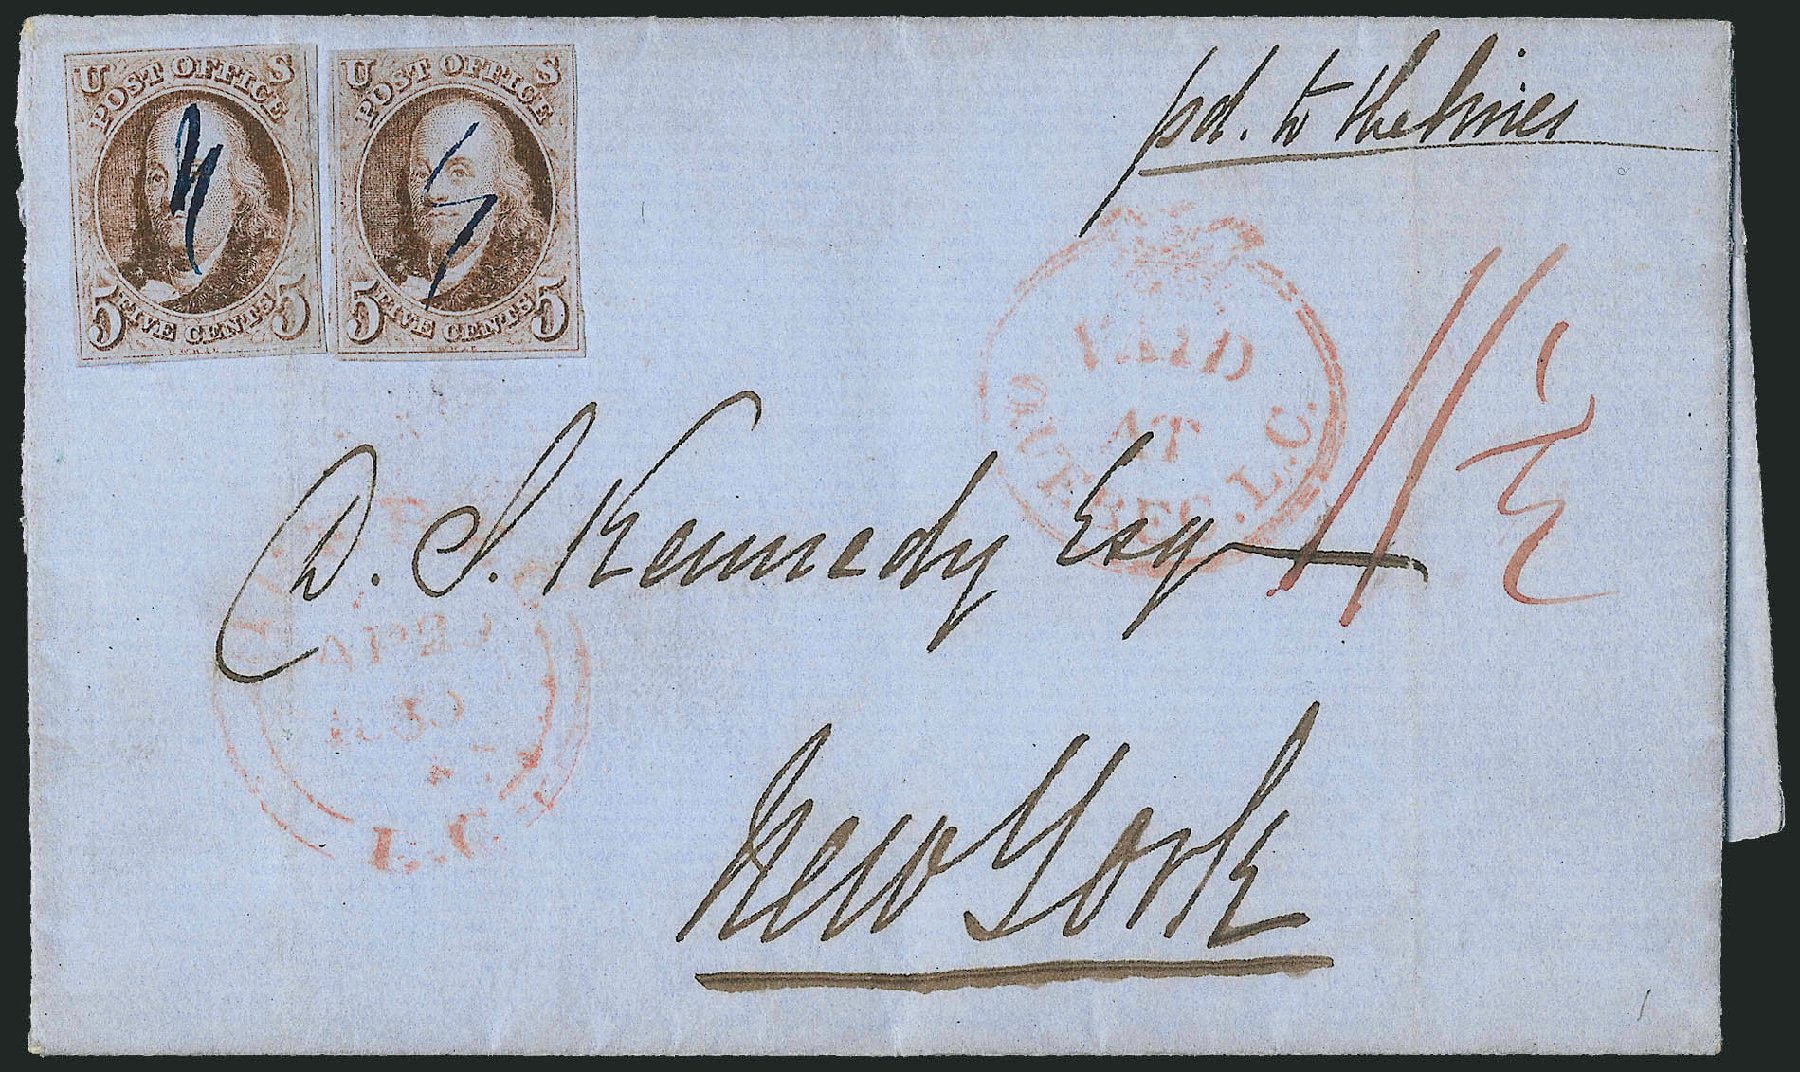 U S
POST OFFICE
5 FIVE CENTS 5
U S
POST OFFICE
5 FIVE CENTS 5
pd. to the lines
PAID
AT
QUEBEC. L.C.
11 1/2
D. S. Kennedy Esq
New York
L.C.